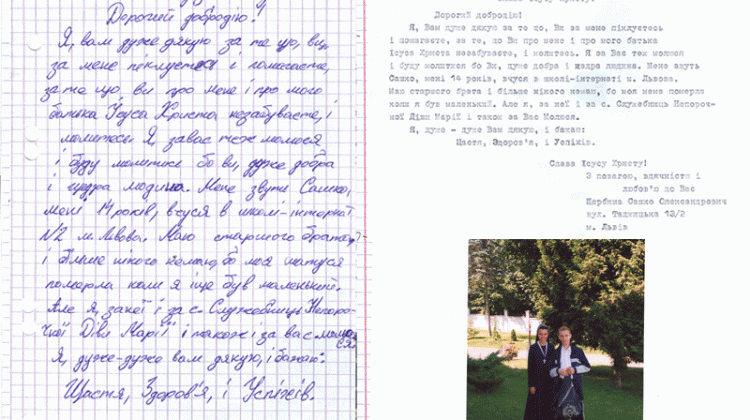 Дорогий добродію!
Я, вам дуже дякую за те що, ви
за мене піклуєтеся і помагаєте,
за те що, ви про мене і про мого
батька Ісуса Христа незабуваєте, і
молитесь. Я, за вас теж молюся
і буду молитися бо ви, дуже добра
і щедра людина. Мене звуть Сашко,
мені 14 років, вчуся в школі-інтернаті
№2 м. Львова. Маю старшого брата,
і більше нікого немаю, бо моя матуся
померла коли я іще був маленький.
Але я, за неї і за с. Служебниць Непоро-
чної Діви Марії і також і за вас молюся.
Я, дуже-дуже вам дякую, і бажаю:
Щастя, Здоров'я, і Успіхів.
Дорогий добродію!
Я, Вам дуже дякую за те що, Ви за мене піклуєтесь
і помагаєте, за те, що Ви про мене і про мого батька
Ісуса Христа незабуваєте, і молитесь. Я за Вас теж молюся
і буду молитися бо Ви, дуже добра і щедра людина. Мене звуть
Сашко, мені 14 років, вчуся в школі-інтернаті м. Львова.
Маю старшого брата і більше нікого немаю, бо моя мама померла
коли я був маленький. Але я, за неї і за с. Служебниць Непороч-
ної Діви Марії і також за Вас Молюся.
Я, дуже - дуже Вам дякую, і бажаю:
Щастя, Здоров'я, і Успіхів.
Слава Ісусу Христу!
З повагою, вдячністю і
любов'ю до Вас
Щербина Сашко Олександрович
вул. Таджицька 13/2
м. Львів